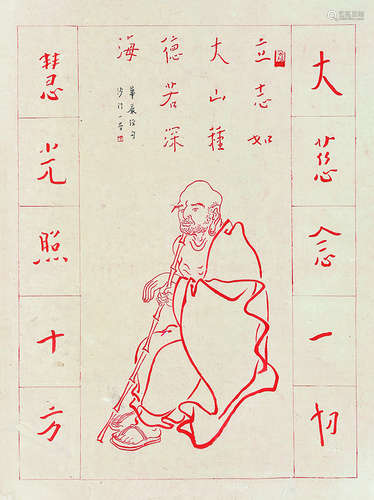 大慈念一切
立志如
大山種
德若深
海
華嚴經句
沙門一音
慧光照十方